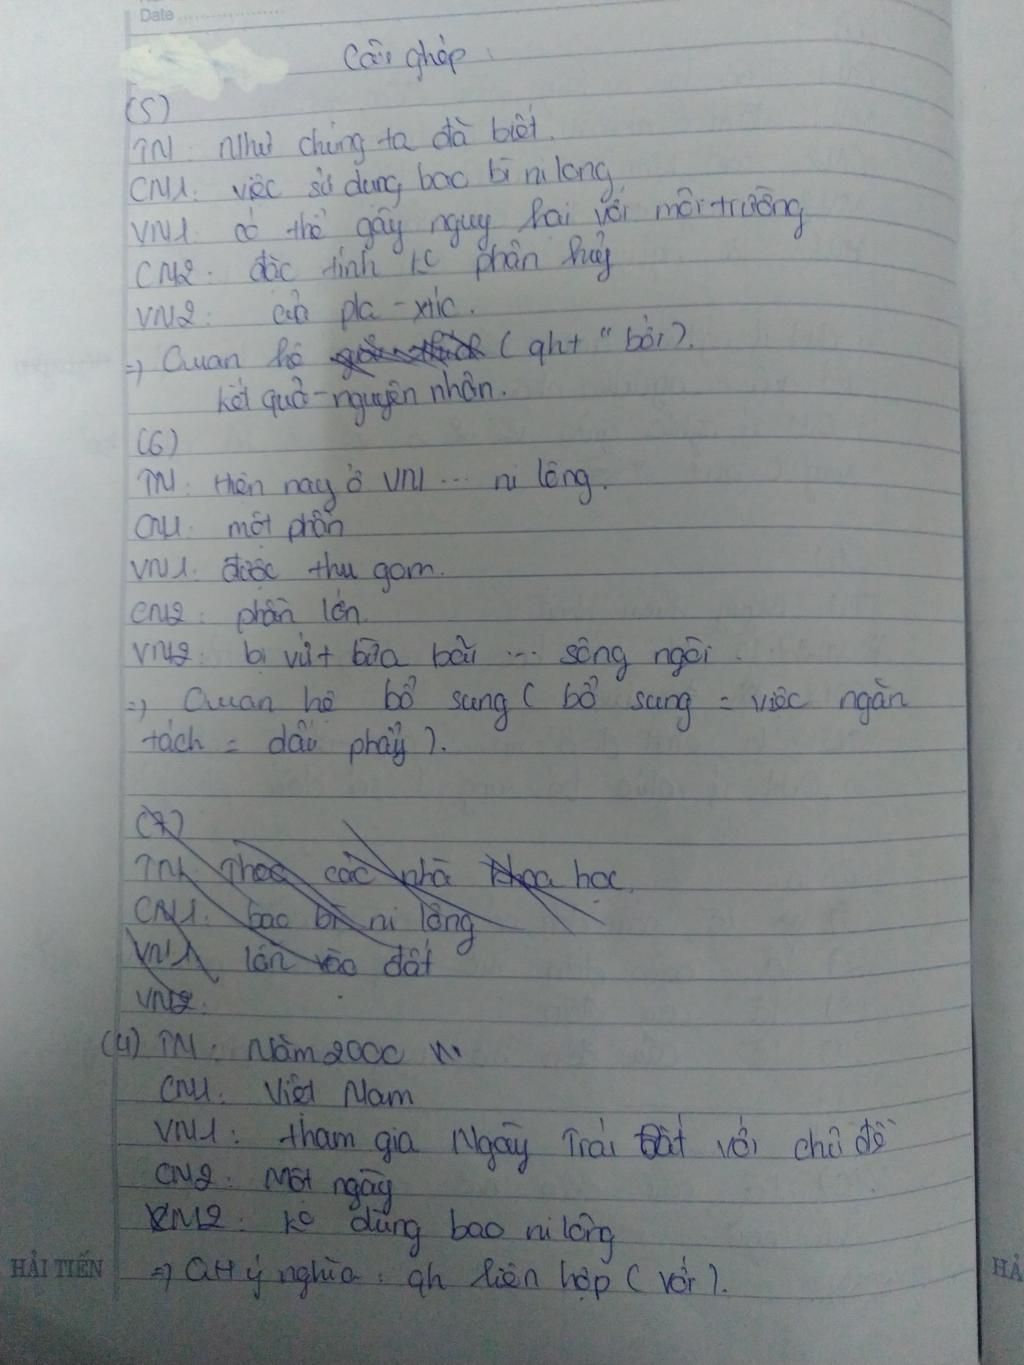 Date
Câu ghép:
(5)
TN: Như chúng ta đã biết.
CN1: việc sử dụng bao bì ni lông
VN1: có thể gây nguy hại với môi trường
CN2: đặc tính k phân hủy
VN2: của pla-xtíc.
=> Quan hệ (qht "bởi).
kết quả-nguyên nhân.
(6)
TN: Hiện nay ở VN1 ... ni lông.
CN1: một phần
VN1: được thu gom.
CN2: phần lớn.
VN2: bị vứt bừa bãi ... sông ngòi.
=> Quan hệ bổ sung ( bổ sung = việc ngăn
tách = dấu phẩy ).
(7)
TN: Theo các nhà khoa học.
CN1: bao bì ni lông
VN1: lẫn vào đất
VN2:
(4) TN: Năm 2000
CN1: Việt Nam
VN1: tham gia Ngày Trái Đất với chủ đề
CN2: Một ngày
VN2: k dùng bao ni lông
HẢI TIẾN => QH ý nghĩa: qh liên hợp ( với ).
HẢ